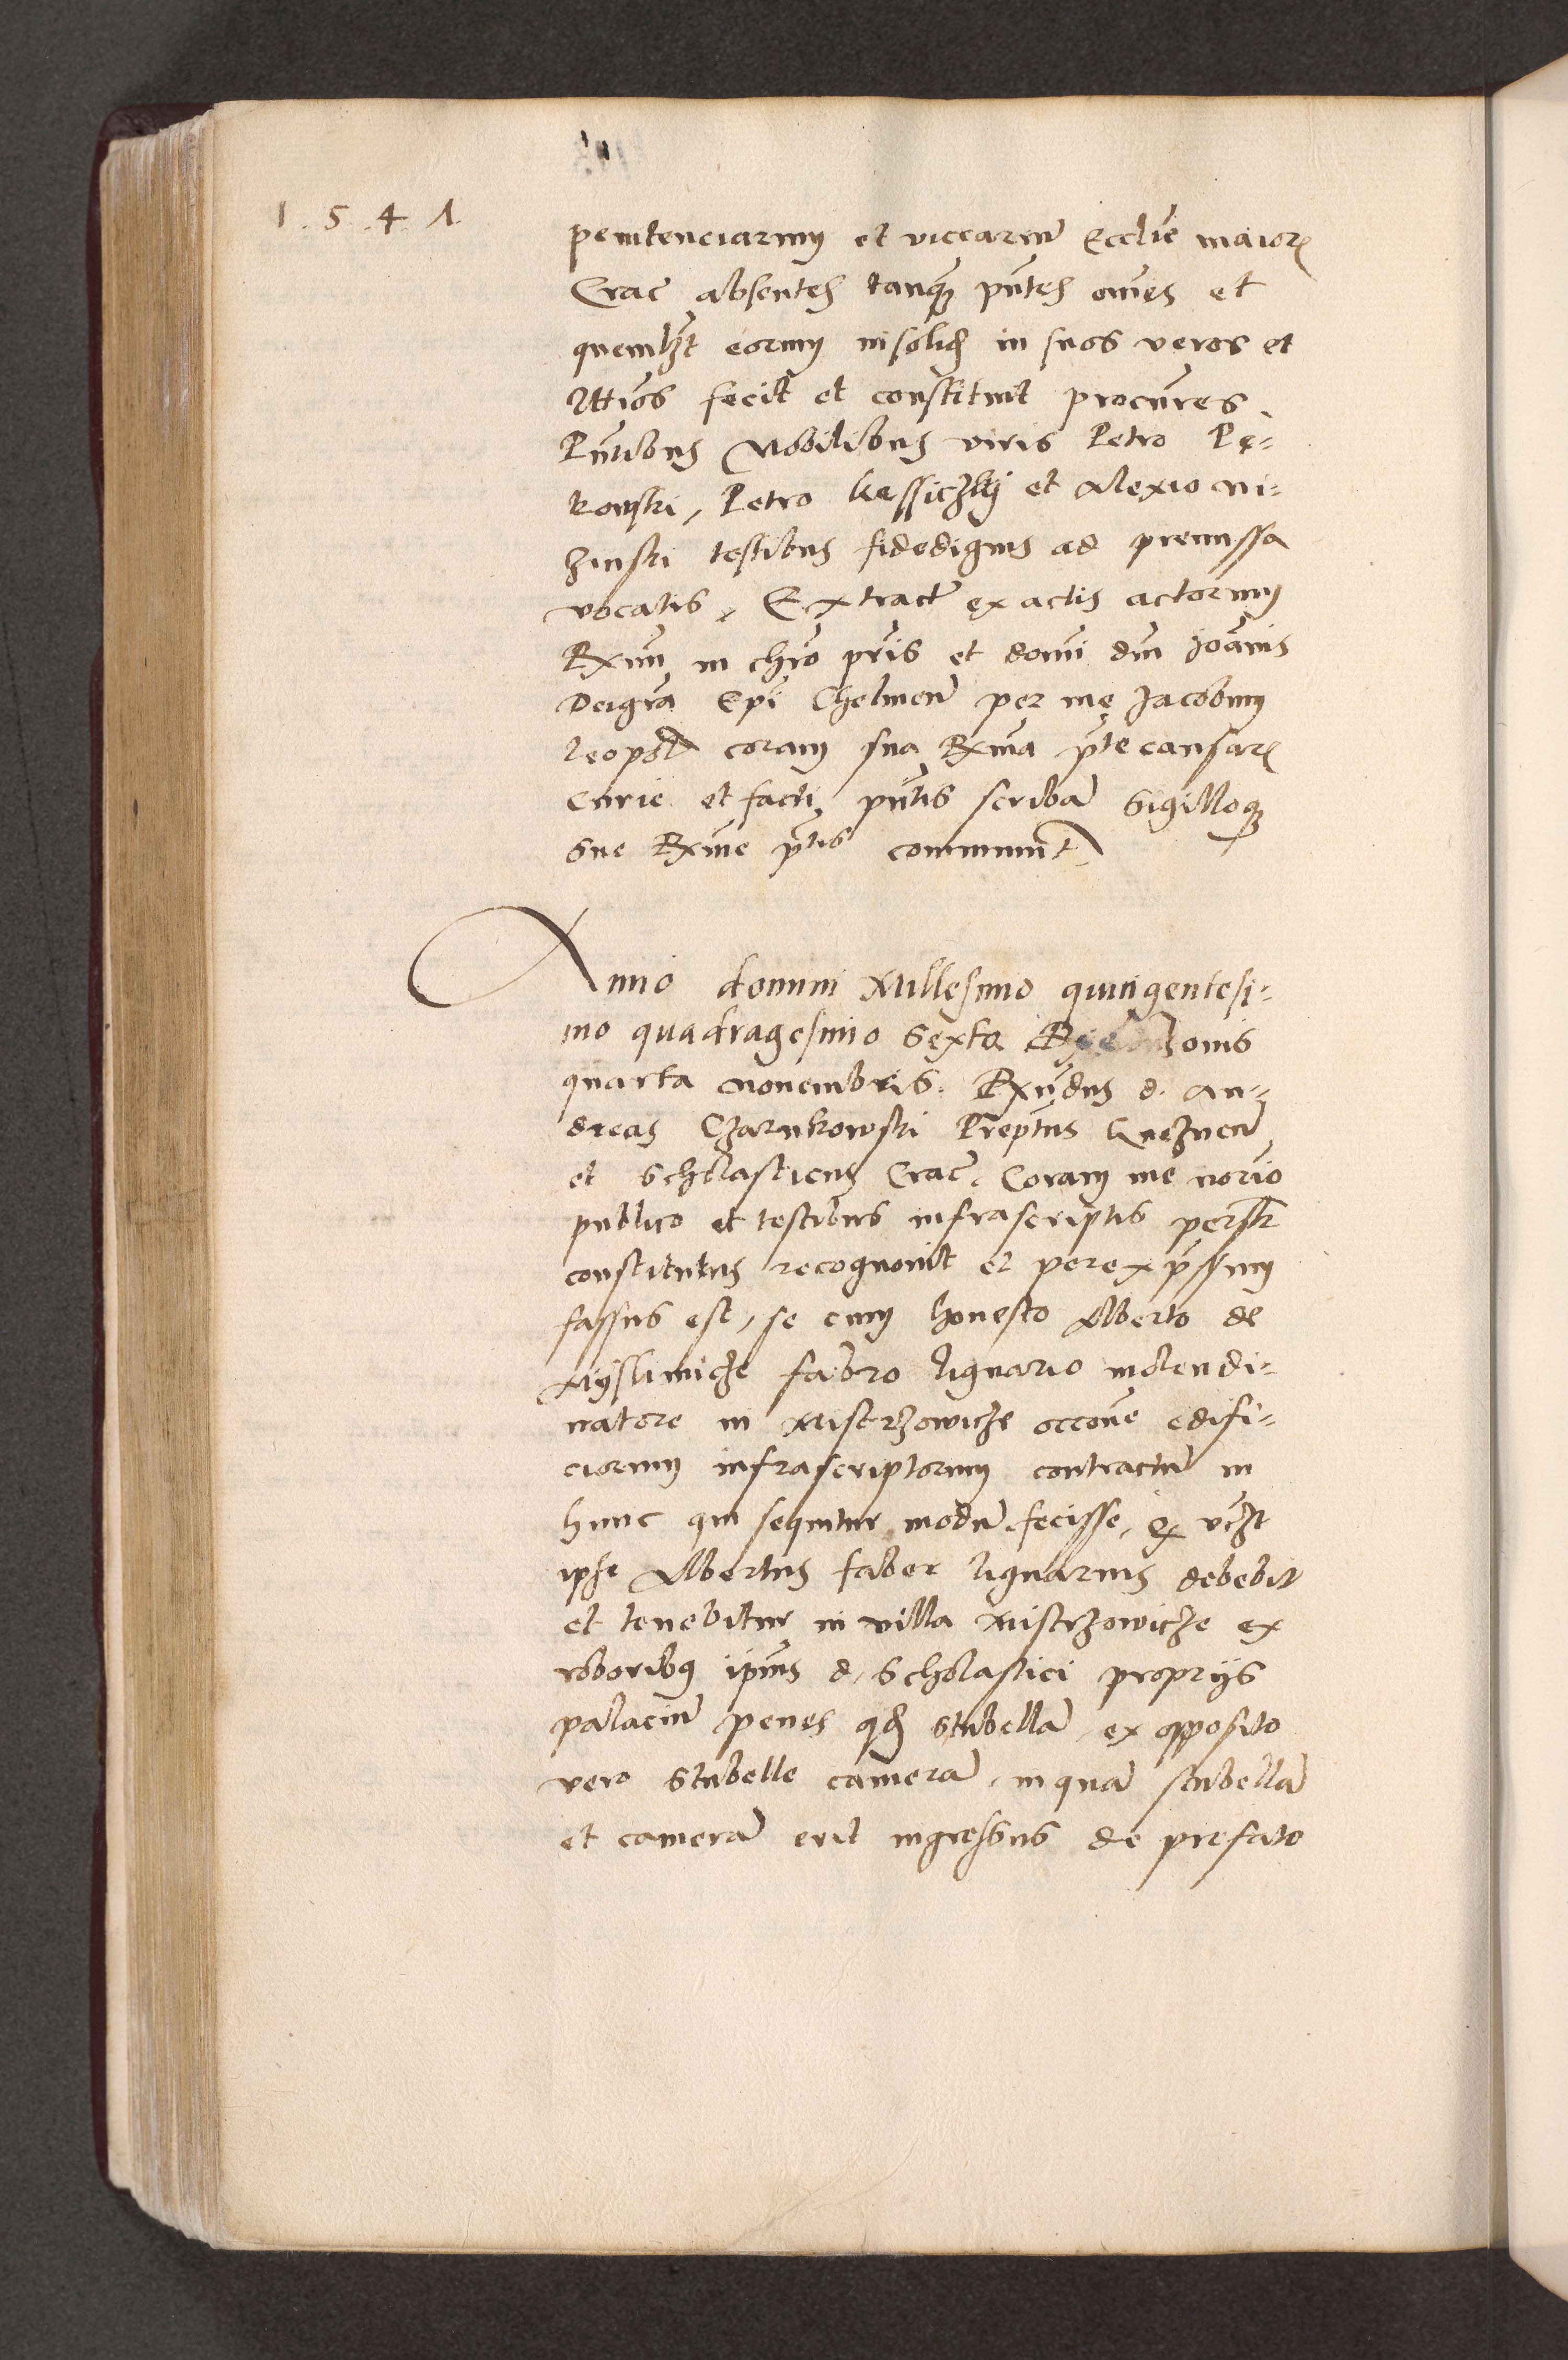 1.5.4.1.
penitenciarium et viccariū Eccl̄ie maior̄
Crac̄ absentes tanq̄ pn̄tes om̄es et
quemlꝫt eorum insolid̄ in suos veros et
lttīos fecit et constituit procūres.
Pn̄tibus Nobilibus viris Petro Pę-
kowski, Petro Kęssiczkij et Alexio Ni-
zinski testibus fidedignis ad premissa
vocatis. Extractū ex actis actorum
Rx̄mi in chr̄o pr̄is et domī dn̄i Joānis
Deigrā Ep̄i Chelmeñ per me Jacobum
Leopol̄ coram sua Rx̄ma p̄te causar̄
Curie et facti pn̄tis scribā Sigilloq̄
Sue Rx̄me p̄tis communit̄
Anno domini Millesimo quingentesi-
mo quadragesimo Sexta
quarta Novembris. Rx̄ndus d. An-
dreas Czarnkowski Prep̄tus Gneznen̄
et Scholasticus Crac̄. Coram me nor̄io
publico et testibus infrascriptis persl̄r
constitutus recognovit et perexp̄ssum
fassus est, se cum honesto Alberto de
Mÿslimicze fabro lignario molendi-
natore in Mistrzowicze occōne edifi-
ciorum infrascriptorum contractū in
hunc qui sequitur modū fecisse, q̄ vꝫt
ipse Albertus faber lignarius debebit
et tenebitur in villa Mistrzowicze ex
roboribꝰ ip̄ius d. Scholastici proprijs
palaciū penes q̄d̄ stubellā, ex opposito
vero Stubelle camerā, inquā stubellā
et camerā erit ingressus de prefato